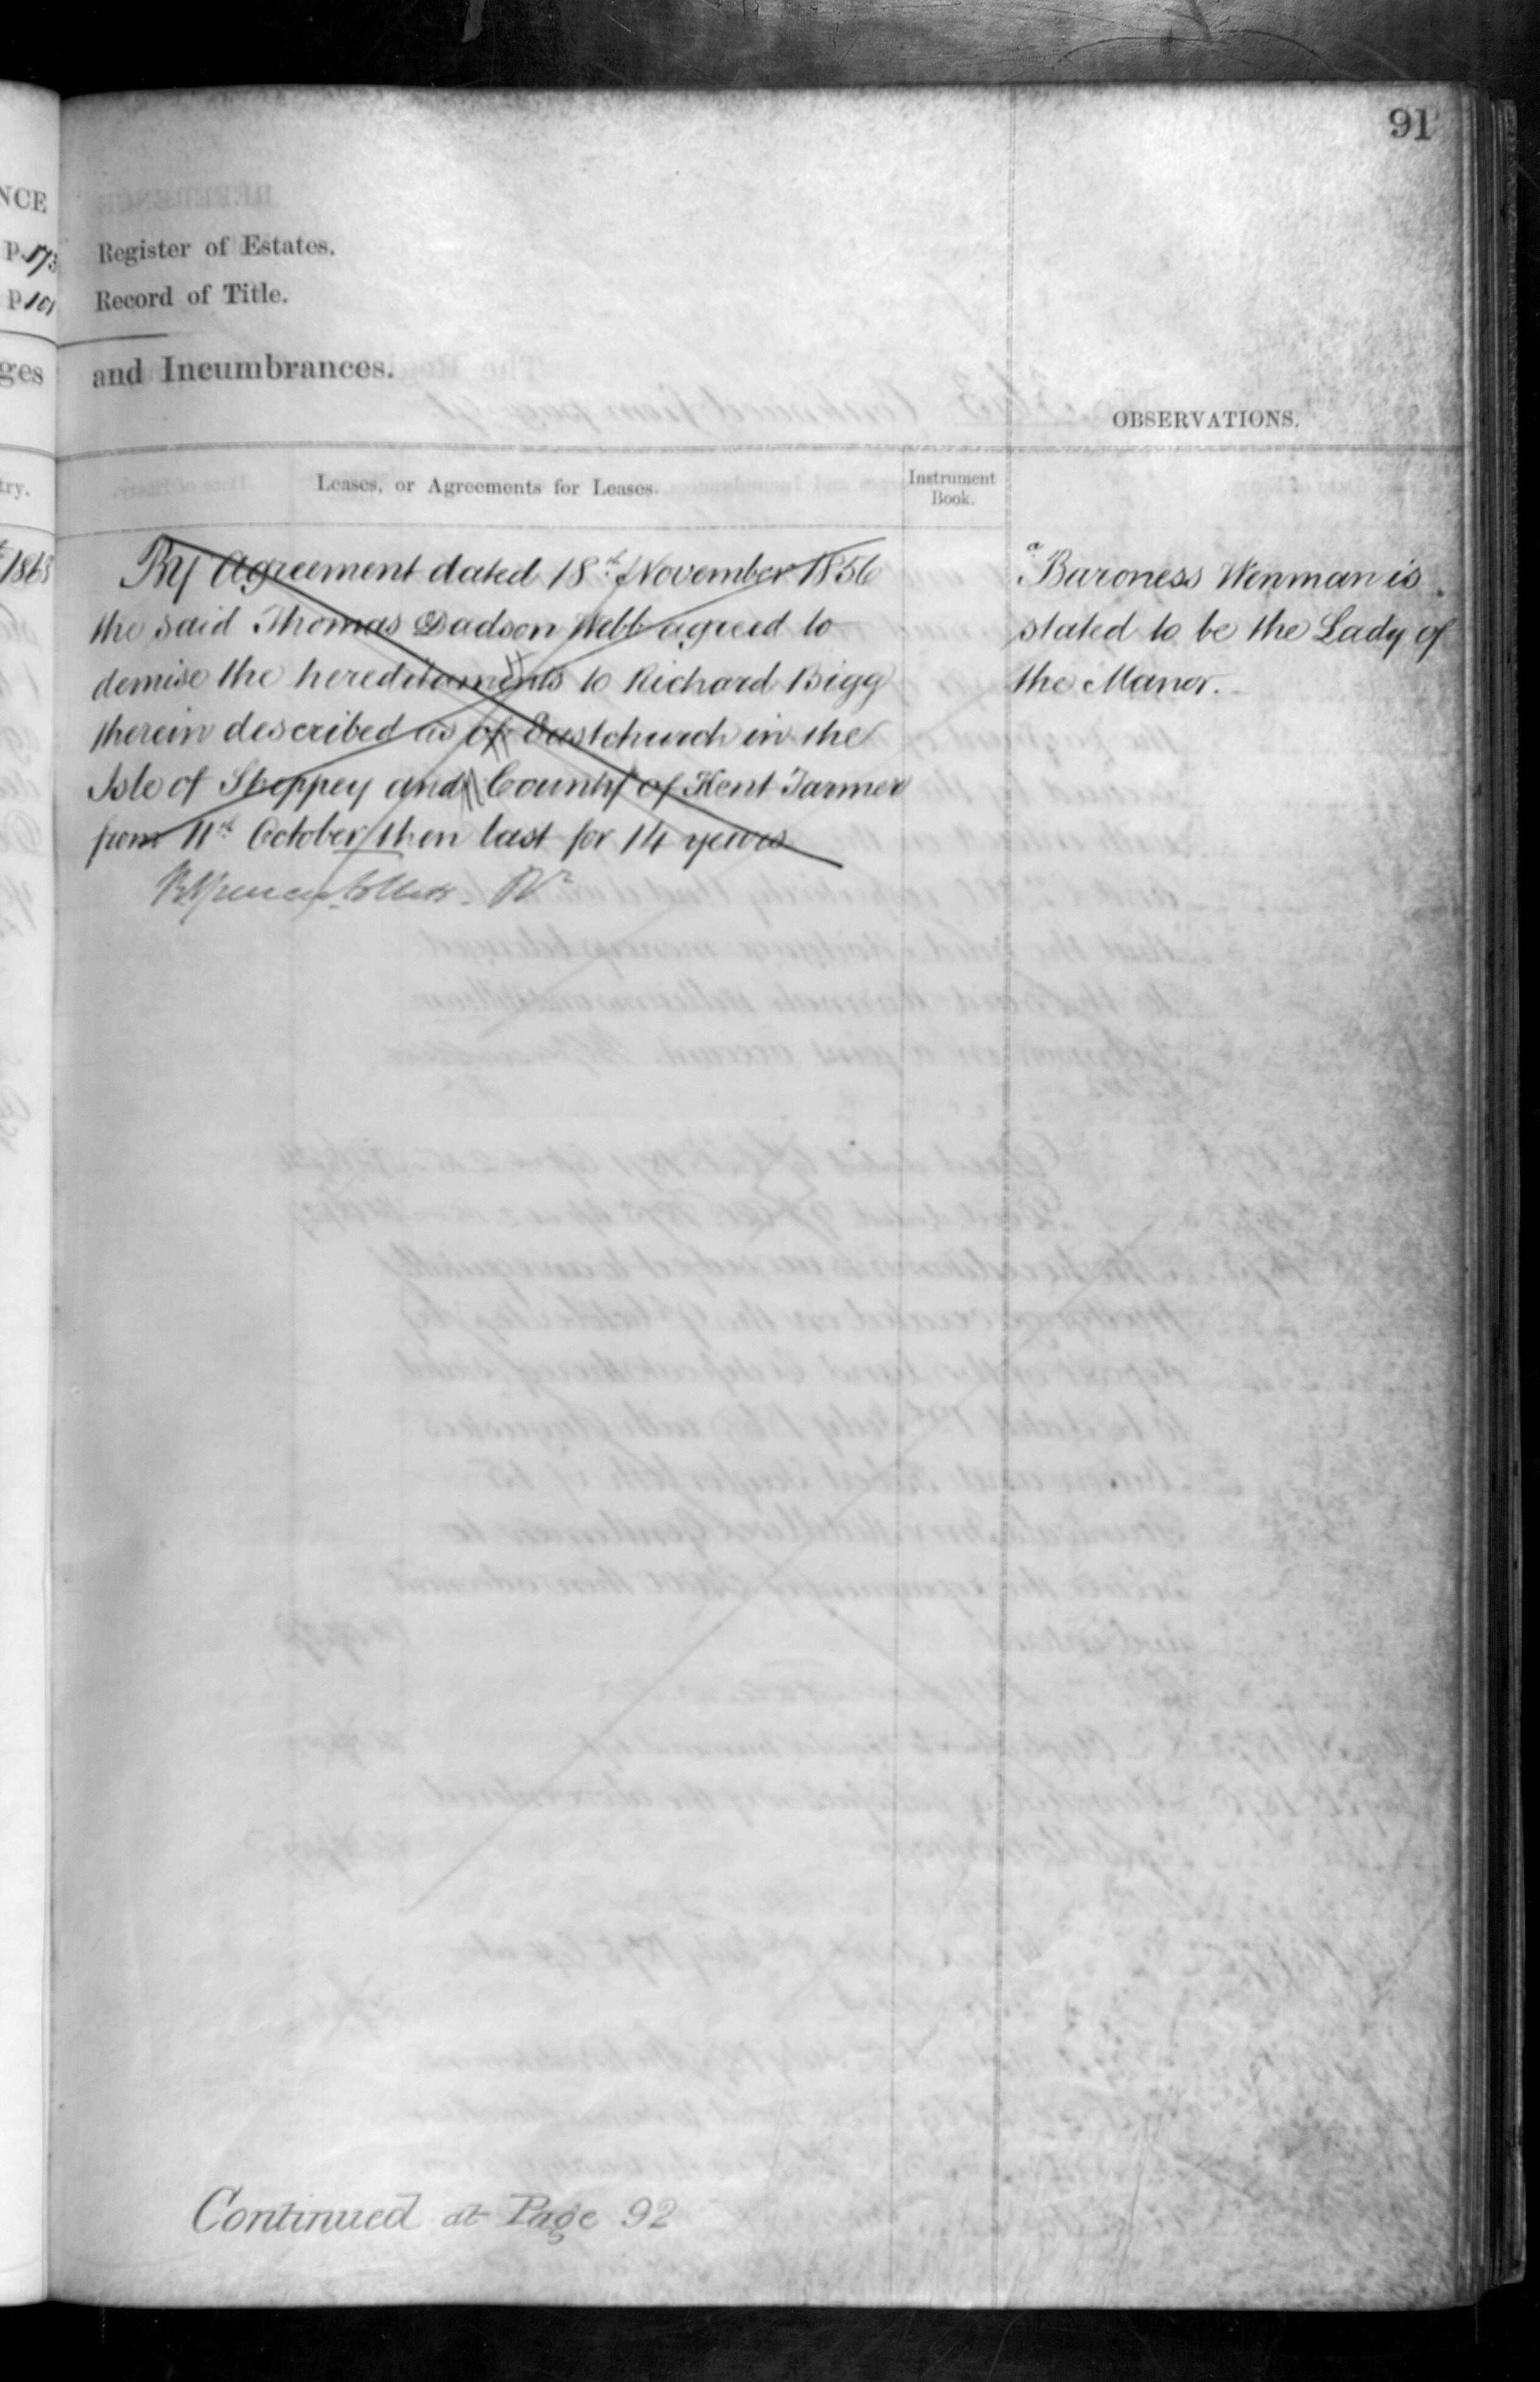 91
NCE
p. 173
p 101
ges
try.
1863
Register of Estates.
Record of Title.
and Incumbrances.
OBSERVATIONS.
Leases, or Agreements for Leases.
Instrument
Book.
By Agreement dated 18th November 1856
the said Thomas Dadson Webb agreed to
demise the hereditaments to Richard Bigg
therein described as of Eastchurch in the
Isle of Sheppey and County of Kent Farmer
from 11th October then last for 14 years
a Baroness Wenman is
stated to be the Lady of
the Manor.
Continued at Page 92